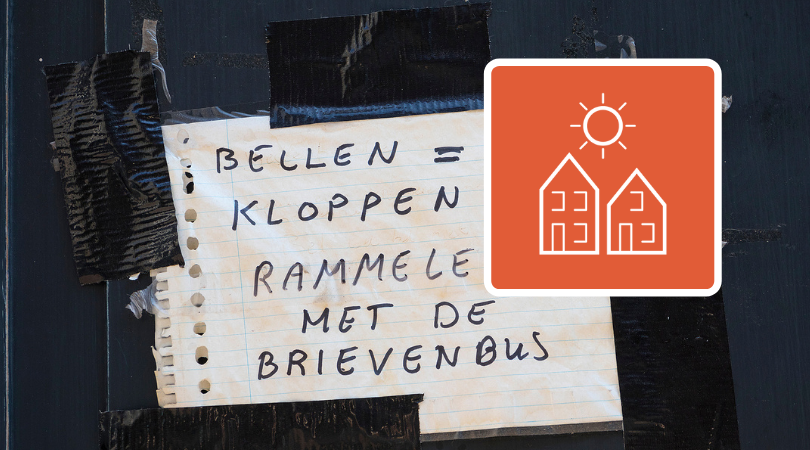 BELLEN =
KLOPPEN
RAMMELE
MET DE
BRIEVENBUS